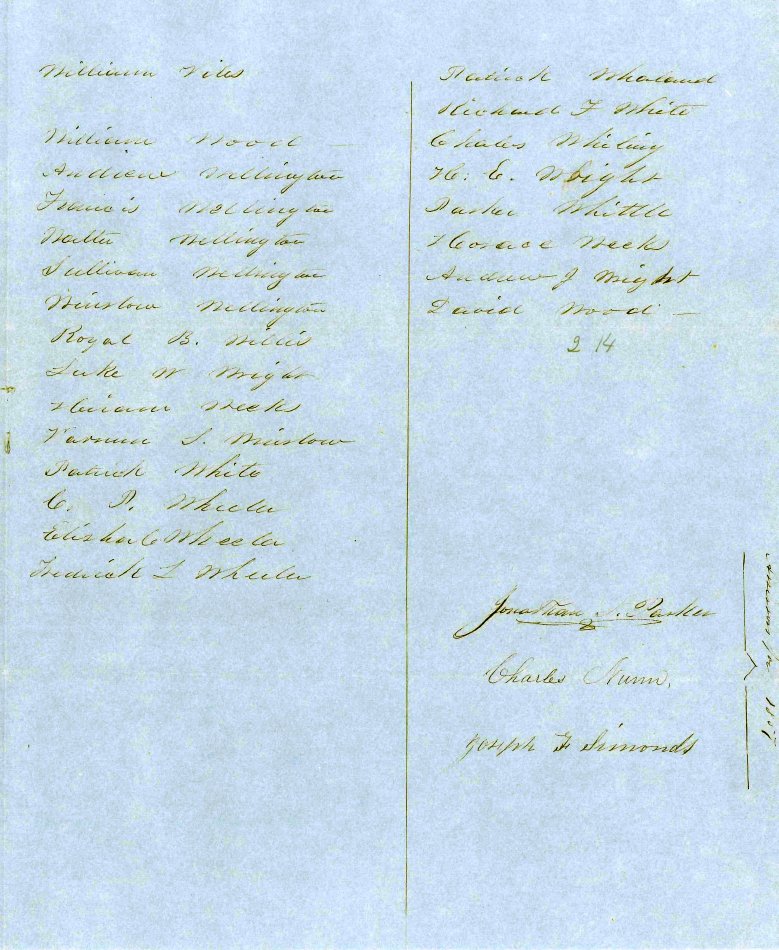 William Viles
William Wood —
Andrew Wellington
Francis Wellington
Walter Wellington
Sullivan Wellington
Winslow Wellington
Royal B. Willis
Luke W Wright
Hiram Weeks
Varnum S. Winslow
Patrick White
C. P. Wheeler
Elisha C Wheeler
Fredrick L Wheeler
Patrick Whaland
Richard F White
Charles Whiting
H. E. Wright
Parker Whittle
Horace Weeks
Andrew J Wright
David Wood —
214
Jonathan S. Parker
Charles Nunn.
Joseph F Simonds